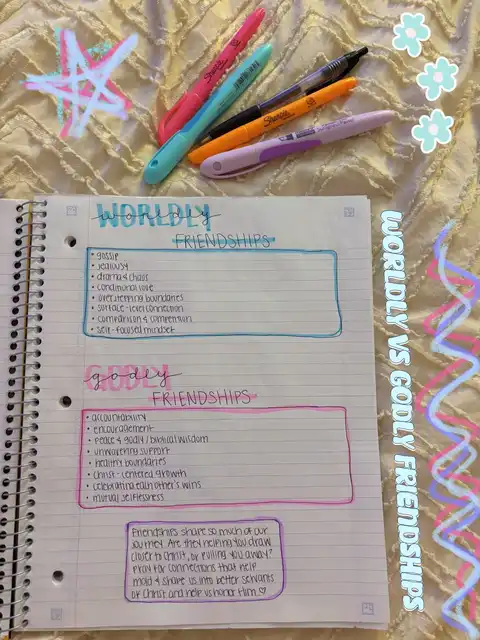 WORLDLY
worldly
FRIENDSHIPS
• gossip
• jealousy
• drama & chaos
• conditional love
• overstepping boundaries
• surface-level connection
• comparison & competition
• self-focused mindset
GODLY
godly
FRIENDSHIPS
• accountability
• encouragement
• peace & godly/biblical wisdom
• unwavering support
• healthy boundaries
• Christ-centered growth
• celebrating each other's wins
• mutual selflessness
Friendships shape so much of our
journey. Are they helping you draw
closer to Christ, or pulling you away?
Pray for connections that help
mold & shape us into better servants
of Christ and help us honor Him ♡
WORLDLY VS GODLY FRIENDSHIPS
Sharpie
Sharpie